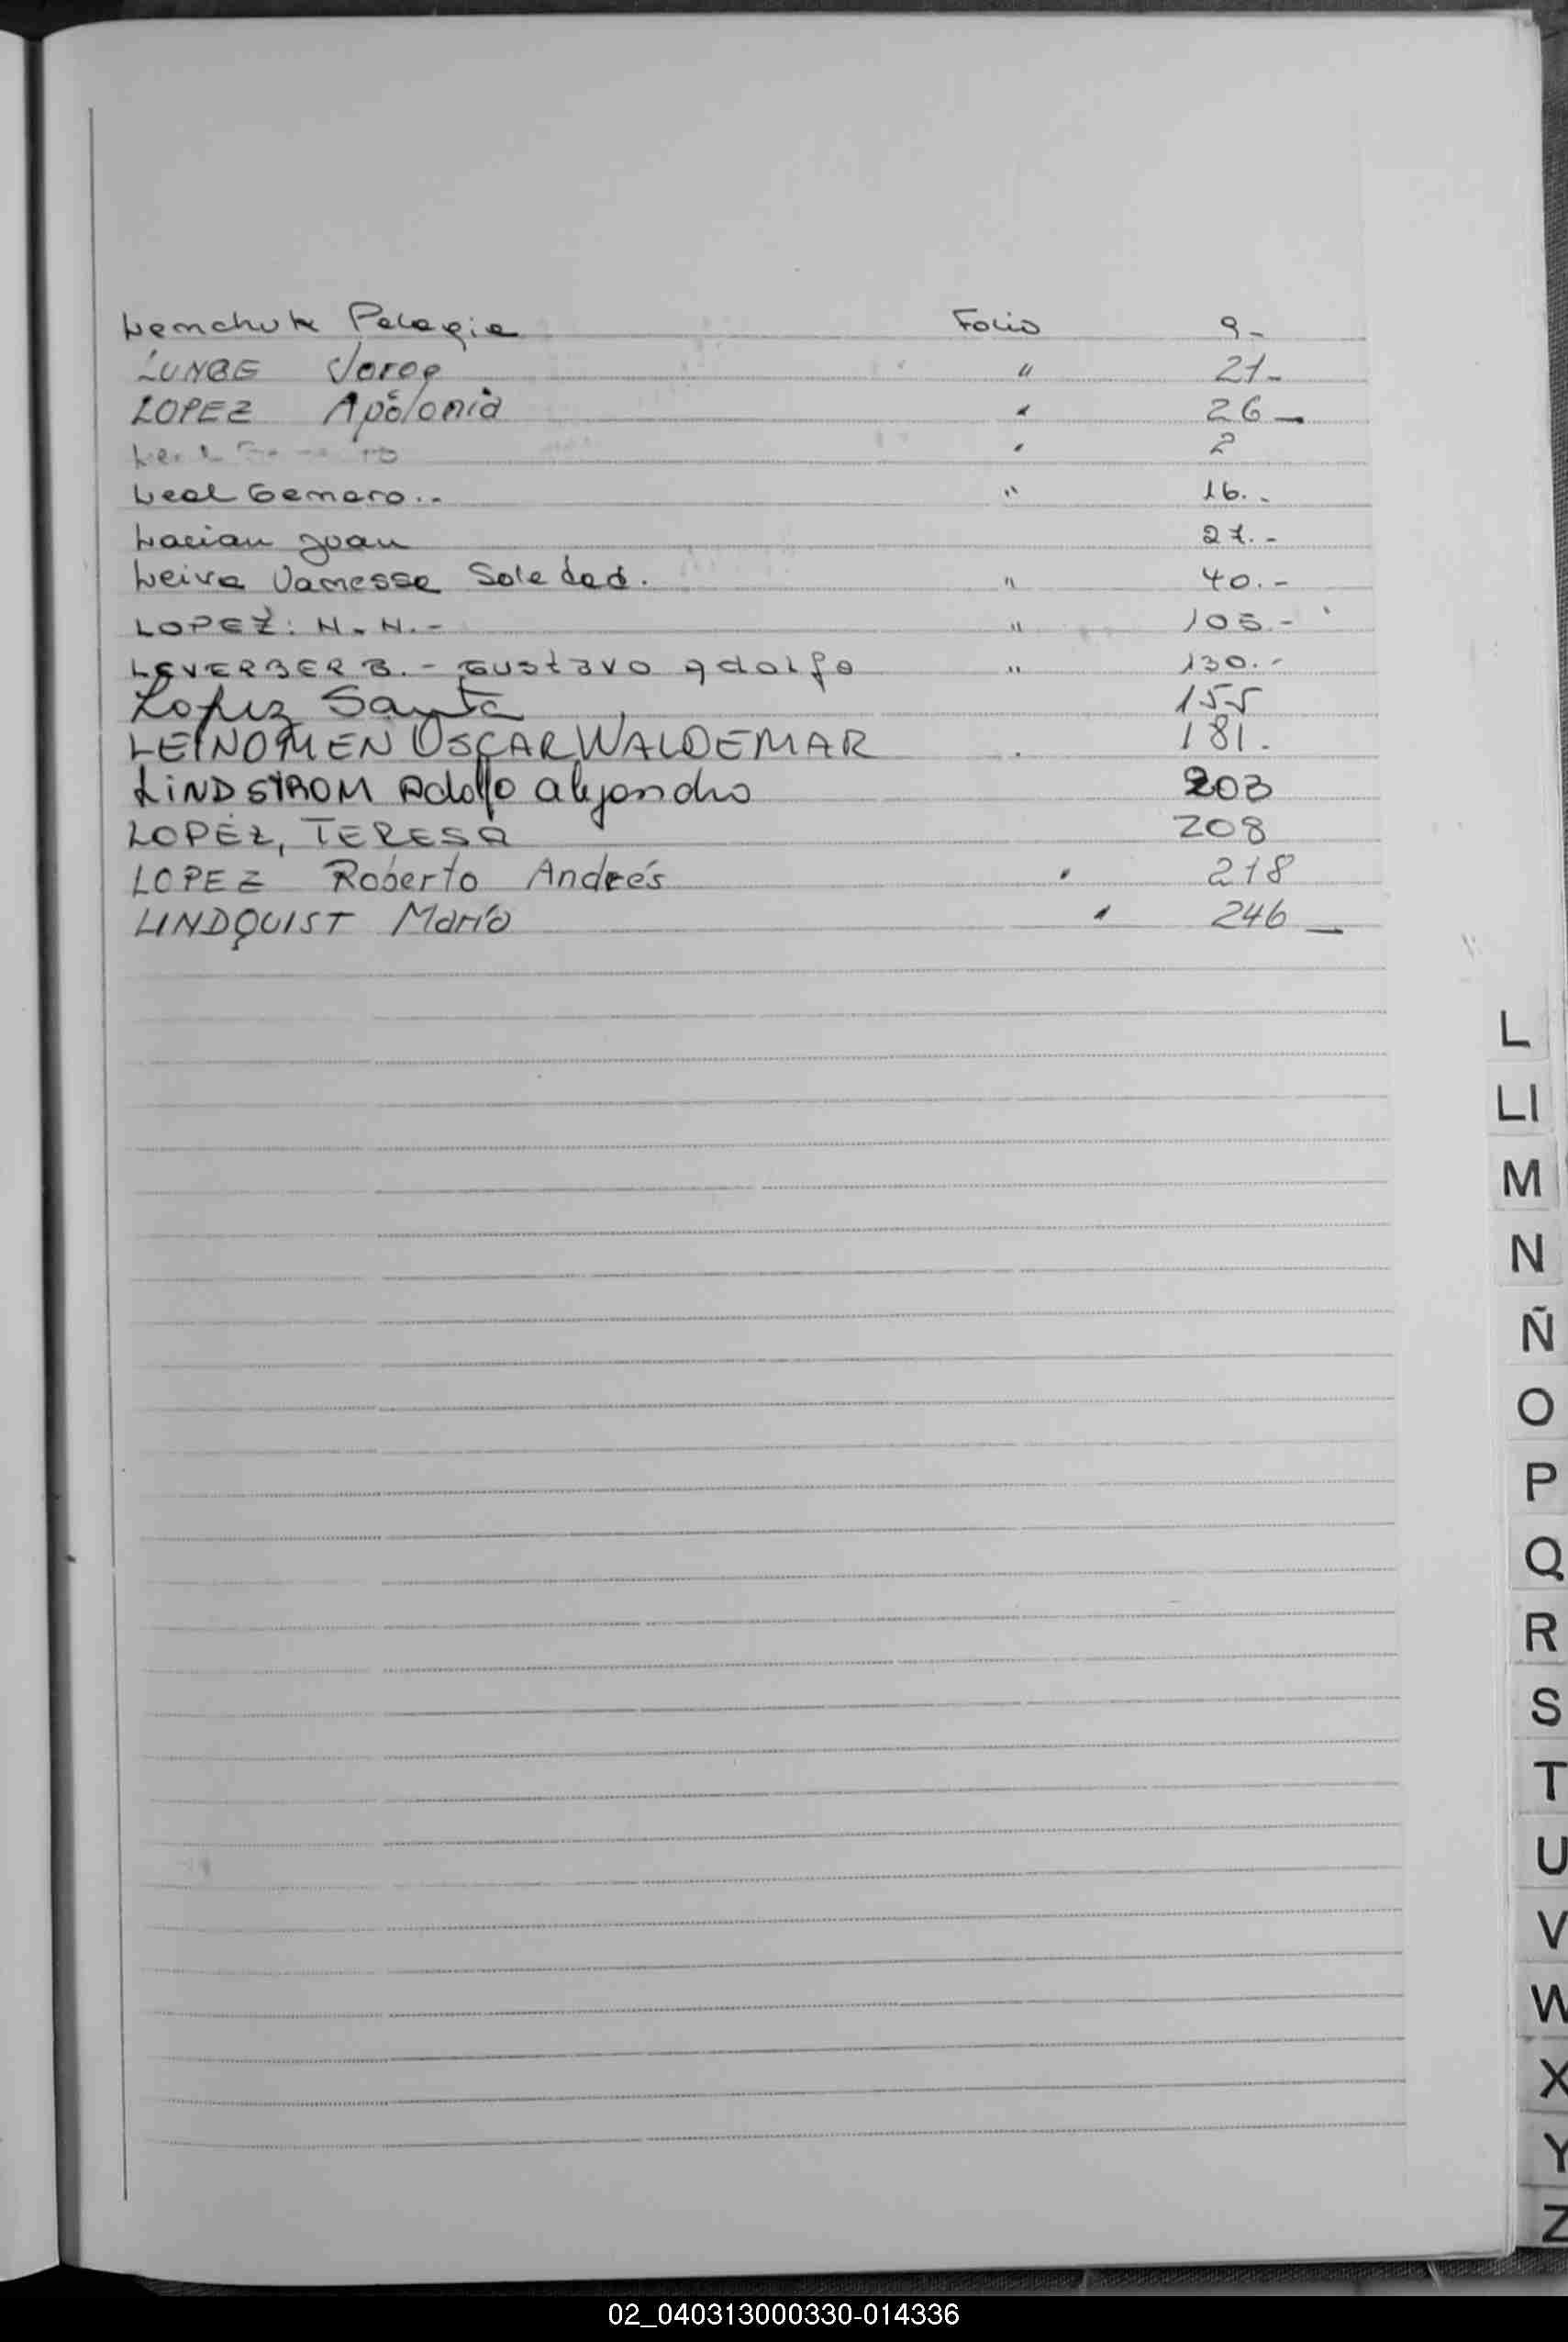 Lemchuk Pelagia Folio 9-
LUNGE Jorge " 21-
LOPEZ Apolonia " 26-
" 2
Leal Genaro.. " 16.-
Lacian Juan 27.-
Leiva Vanessa Soledad. " 40.-
LOPEZ: N.N.- " 105.-
LEVERBERB.- GUSTAVO ADOLFO " 130.-
Lopez Santa 155
LEINOMEN OSCAR WALDEMAR 181.
LINDSTROM Adolfo Alejandro 203
LOPEZ, TERESA 208
LOPEZ Roberto Andrés " 218
LINDQUIST María " 246-
L
Ll
M
N
Ñ
O
P
Q
R
S
T
U
V
W
X
Y
Z
02_040313000330-014336